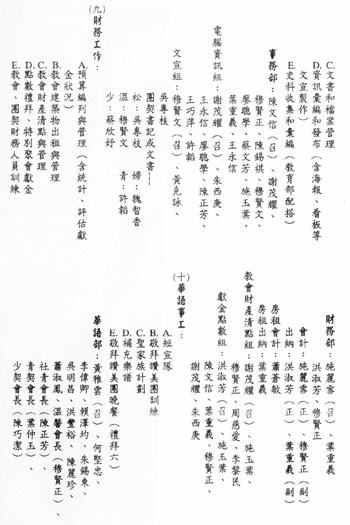 C.文書和檔案管理
D.資訊彙編和發布（含海報、看板等
文宣製作）
E.史料收集和彙編（教育部配搭）
事務部：陳文信（召）、謝茂耀、
穆賢正、陳錫祺、穆賢文、
廖聰學、蔡文芳、施玉葉、
葉重義、王永信
電腦資訊組：謝茂耀（召）、朱西庚、
王永信、廖聰學、陳正芳、
王巧萍、許韜
文宣組：穆賢文（召）、黃克詠、
吳專枝
團契書記或文書—
松：吳專枝　婦：魏智香
溫：穆賢文　青：許韜
少：蔡欣妤
（九）財務工作：
A.預算編列與管理（含統計、評估獻
金狀況）
B.教會建築物出租與管理
C.教會財產清點與管理
D.點數禮拜、特別聚會獻金
E.教會、團契財務人員訓練
財務部：施麗雪（召）、葉重義
洪淑芳、穆賢正
會計：施麗雪（正）、
出納：洪淑芳（正）、葉重義（副）
房租會計：蕭蒼敏
房租出納：葉重義
教會財產清點組：洪淑芳（召）、施玉葉、
穆賢正、周慈愛、李黎民
獻金點數組：洪淑芳（召）、施玉葉、
陳文信、葉重義、穆賢正、
謝茂耀、朱西庚
（十）華語事工：
A.短宣隊
B.敬拜讚美團訓練
C.聖家族計劃
D.補充樂譜
E.敬拜讚美團晚餐（禮拜六）
華語部：黃雅雲（召）、何堅忠、
李偉卿、賴澤均、朱錫東、
吳明昌、洪豐裕、陳麗珍、
蕭淑鳳、溫馨會長（穆賢正）、
社青會長（陳正芳）、
青契會長（葉仲玉）、
少契會長（陳巧潔）